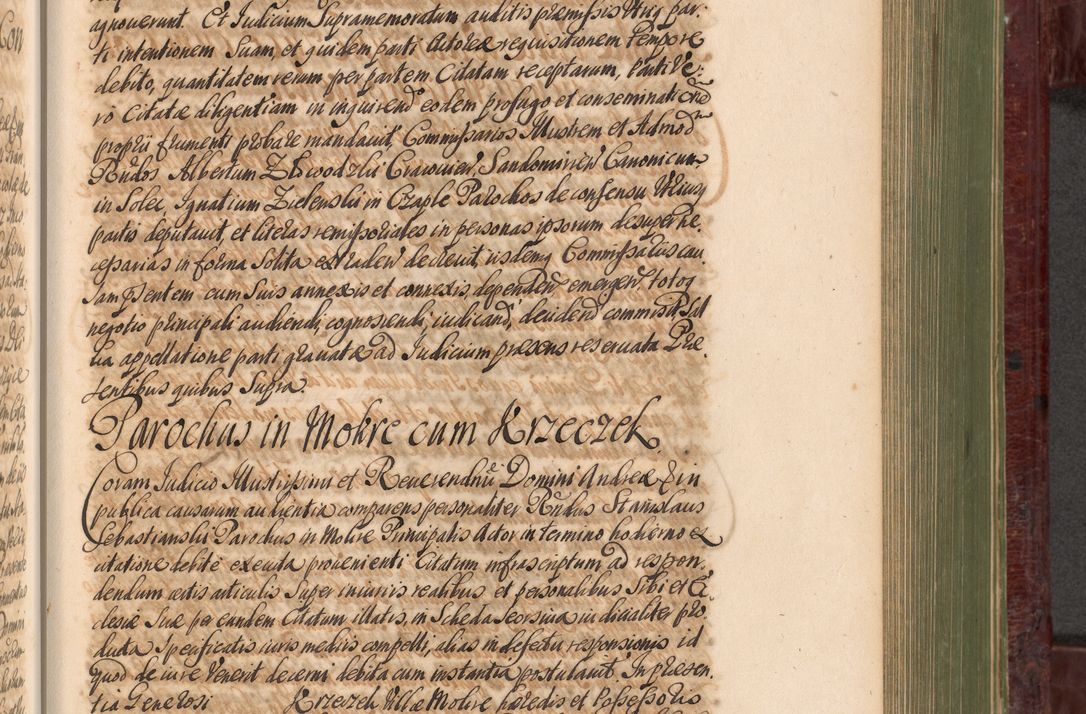 agnoverunt. Et Iudicium Supramemoratum auditis præmissis Utrius par-
ti intentionem Suam, et quidem parti Actoreæ requisitionem tempore
debito, quantitatem rerum per partem Citatam receptarum, Parti Ve-
ro Citatæ diligentiam in inquirend eodem profugo et conseminatione
proprii frumenti probare mandavit, Commissarios Illustrem et Admod
Rndos Albertum Cracovien, Sandomirien Canonicum
in Solec, Ignatium Zielenski in Czaple Parochos de consensu Utriusq
partis deputavit, et literas remissoriales in personas ipsorum desuper ne-
cessarias in forma Solita extraden decrevit, iisdemq Commissariis cau-
sam psentem cum Suis annexis et connexis, dependen emergen, totoq
negotio principali audiendi, cognoscendi, iudicand, decidend commisit Sal-
va appellatione parti gravatæ ad Iudicium præsens reservata Præ-
sentibus quibus Supra.
Parochus in Mokre cum Krzeczek.
Coram Iudicio Illustrissimi et Reverendmi Domini Andreæ in
publica causarum audientia comparens personaliter Rndus Stanislaus
Sebastianski Parochus in Mokre Principalis Actor in termino hodierno ex
citatione debite executa provenienti Citatum infrascriptum ad respon-
dendum certis articulis Super iniuriis realibus et personalibus Sibi et Ec-
clesiæ Suæ per eundem Citatum illatis, in Scheda Seorsiva iudicialiter pro-
ducta Specificatis iuris mediis compelli, alias in defectu responsionis id
quod de iure Venerit decerni debita cum instantia postulavit. In præsen-
tia Generosi Krzeczek Villæ Mokre hæredis et Possessoris